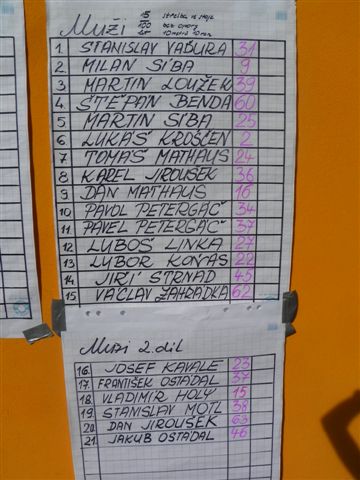 Muži
1. STANISLAV VAĎURA 31
2. MILAN SIBA 9
3 MARTIN LOUŽEK 39
4 ŠTĚPÁN BENDA 60
5 MARTIN SIBA 25
6 LUKÁŠ KROŠČEN 2
7 TOMÁŠ MATHAUS 24
8 KAREL JIROUŠEK 36
9 DAN MATHAUS 16
10 PAVOL PETERGÁČ 34
11 PAVEL PETERGÁČ 37
12 LUBOŠ LINKA 27
13 LUBOR 22
14 JIŘÍ STRNAD 45
15 VÁCLAV ZAHRÁDKA 62
Muži 2.díl
16. JOSEF KAVALE 23
17. FRANTIŠEK OSTÁDAL 37
18. VLADIMÍR HOLÝ 15
19 STANISLAV MOTL 38
20. DAN JIROUŠEK 63
21. JAKUB OSTÁDAL 46